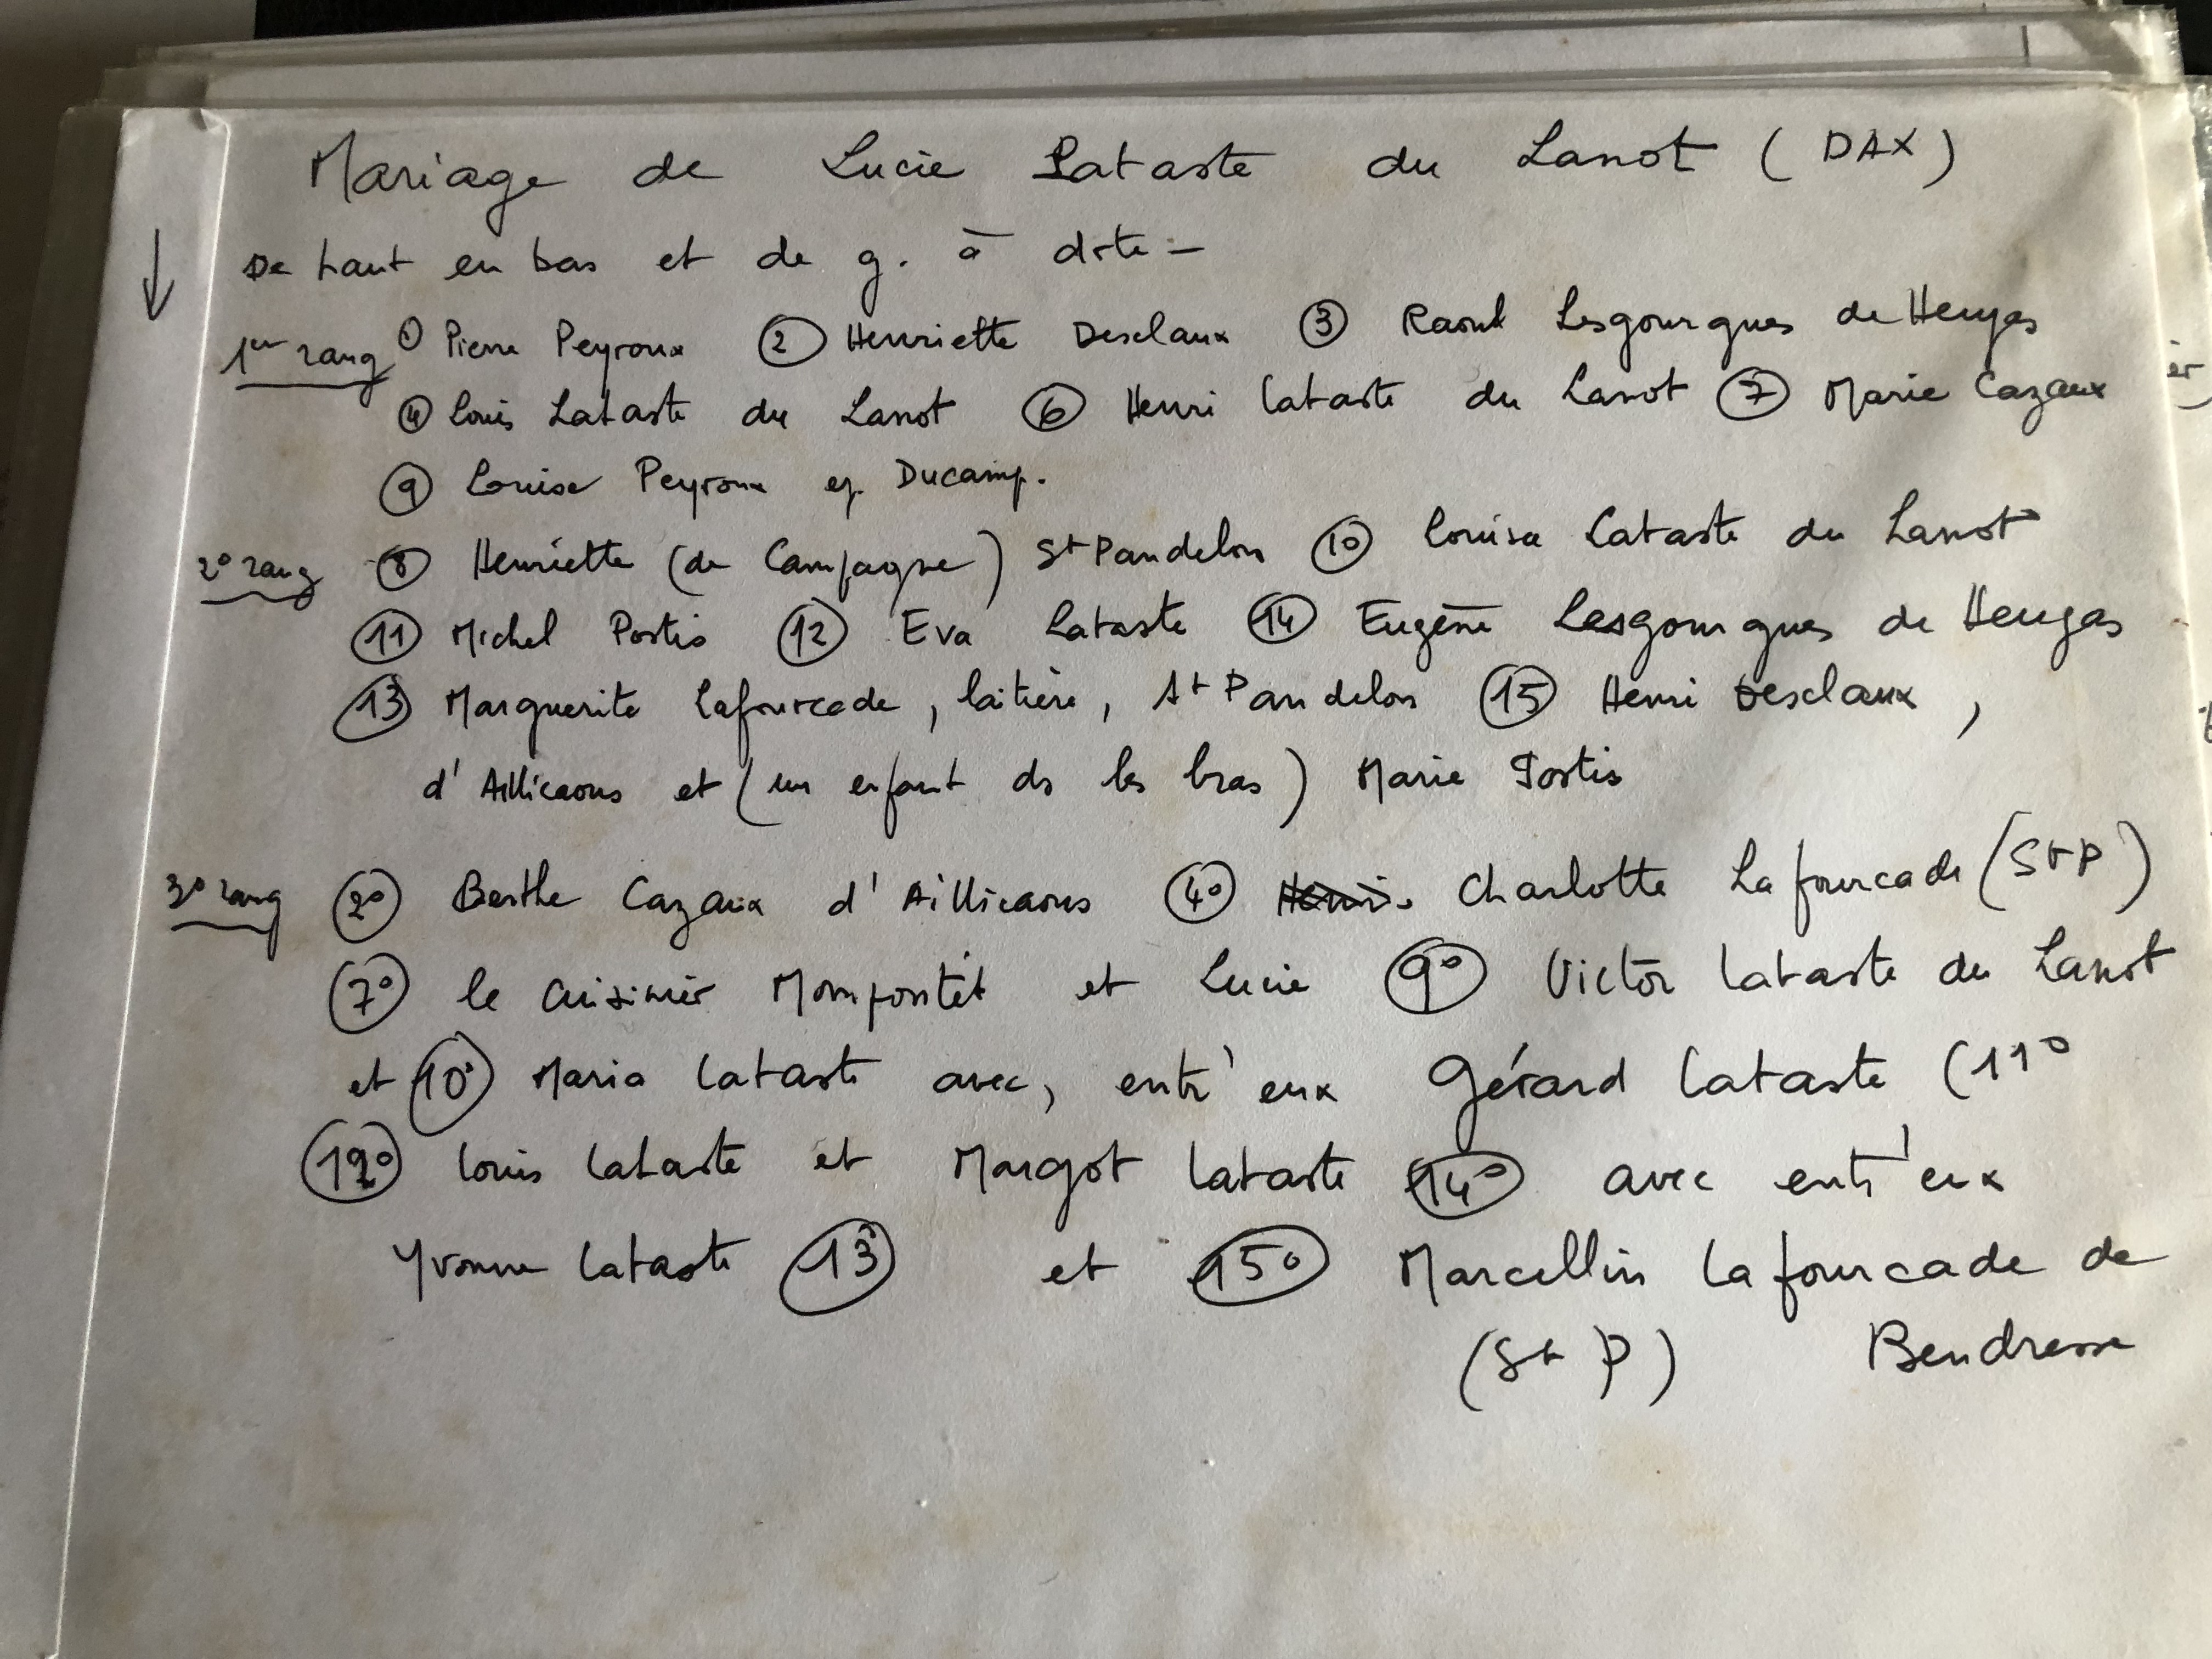 Mariage de Lucie Lataste du Lanot (DAX)
De haut en bas et de g. à drte –
1er rang ① Pierre Peyroux ② Henriette Desclaux ③ Raoul Lesgourgues de Heugas
④ Louis Lataste du Lanot ⑥ Henri Lataste du Lanot ⑦ Marie Cazaux
⑨ Louise Peyroux ep. Ducamp.
2° rang ⑧ Henriette (de Campagne) St Pandelon ⑩ Louisa Lataste du Lanot
⑪ Michel Postis ⑫ Eva Lataste ⑭ Eugène Lesgourgues de Heugas
⑬ Marguerite Lafourcade, laitière, St Pandelon ⑮ Henri Desclaux,
d'Aillicaous et (un enfant ds les bras) Marie Postis
3° rang (2°) Berthe Cazaux d'Aillicaous (4°) Charlotte Lafourcade (St P)
(7°) le cuisinier Mompontét et Lucie (9°) Victor Lataste du Lanot
et (10°) Maria Lataste avec, entr'eux Gérard Lataste (11°
(12°) Louis Lataste et Margot Lataste (14°) avec entr'eux
Yvonne Lataste (13°) et (15°) Marcellin Lafourcade de
(St P) Bendresse